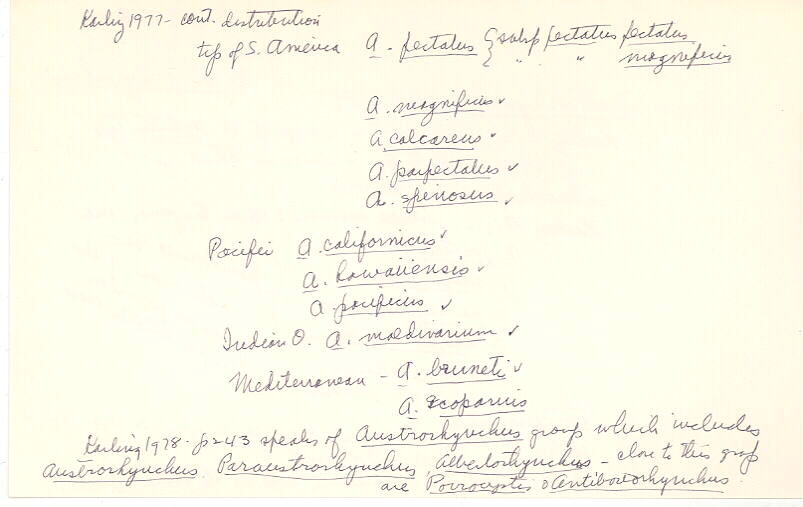 Karling 1977 - cont. distribution
tip of S. America A. pectatus { subsp pectatus pectatus
" " magnificus
A. magnificus ✓
A. calcareus ✓
A. parapectatus ✓
A. spinosus ✓
Pacific A. californicus ✓
A. hawaiiensis ✓
A. pacificus ✓
Indian O. A. maldivarium ✓
Mediterranean - A. bruneti ✓
A. scoparius
Karling 1978 - p 243 speaks of Austrorhynchus group which includes
Austrorhynchus, Paraustrorhynchus, Alberlorhynchus - close to this group
are Porrocystis &